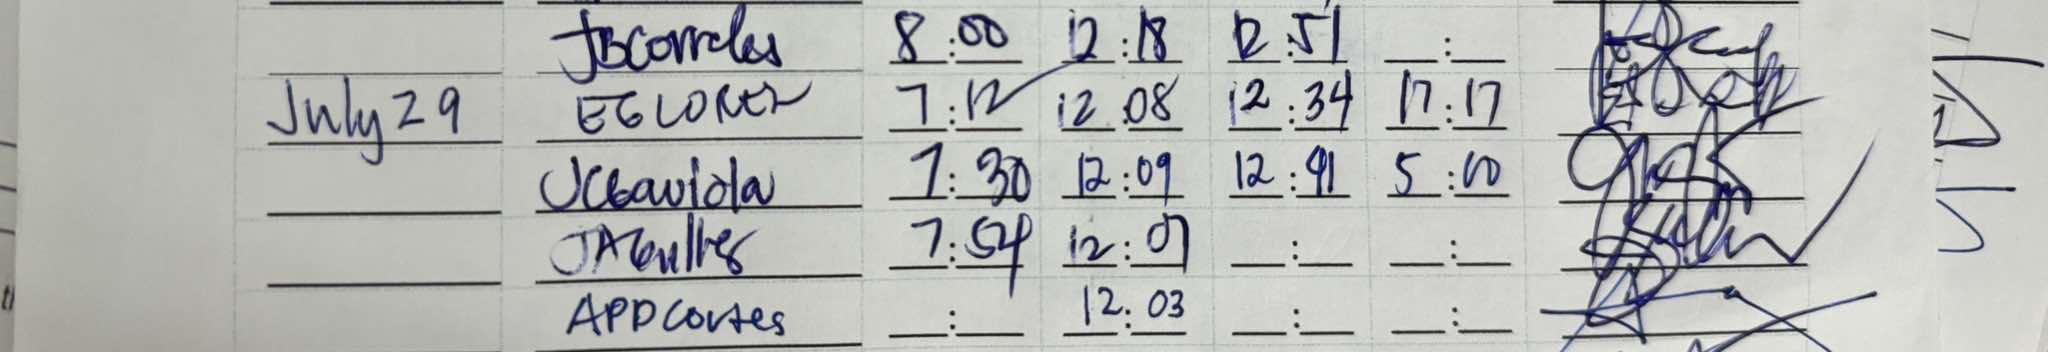 JBCorrales 8:00 12:18 12:51 __:__
July 29 EGLOREN 7:12 12:08 12:34 17:17
JCGaviola 7:30 12:09 12:41 5:00
7:54 12:07 __:__ __:__
APDCortes __:__ 12:03 __:__ __:__